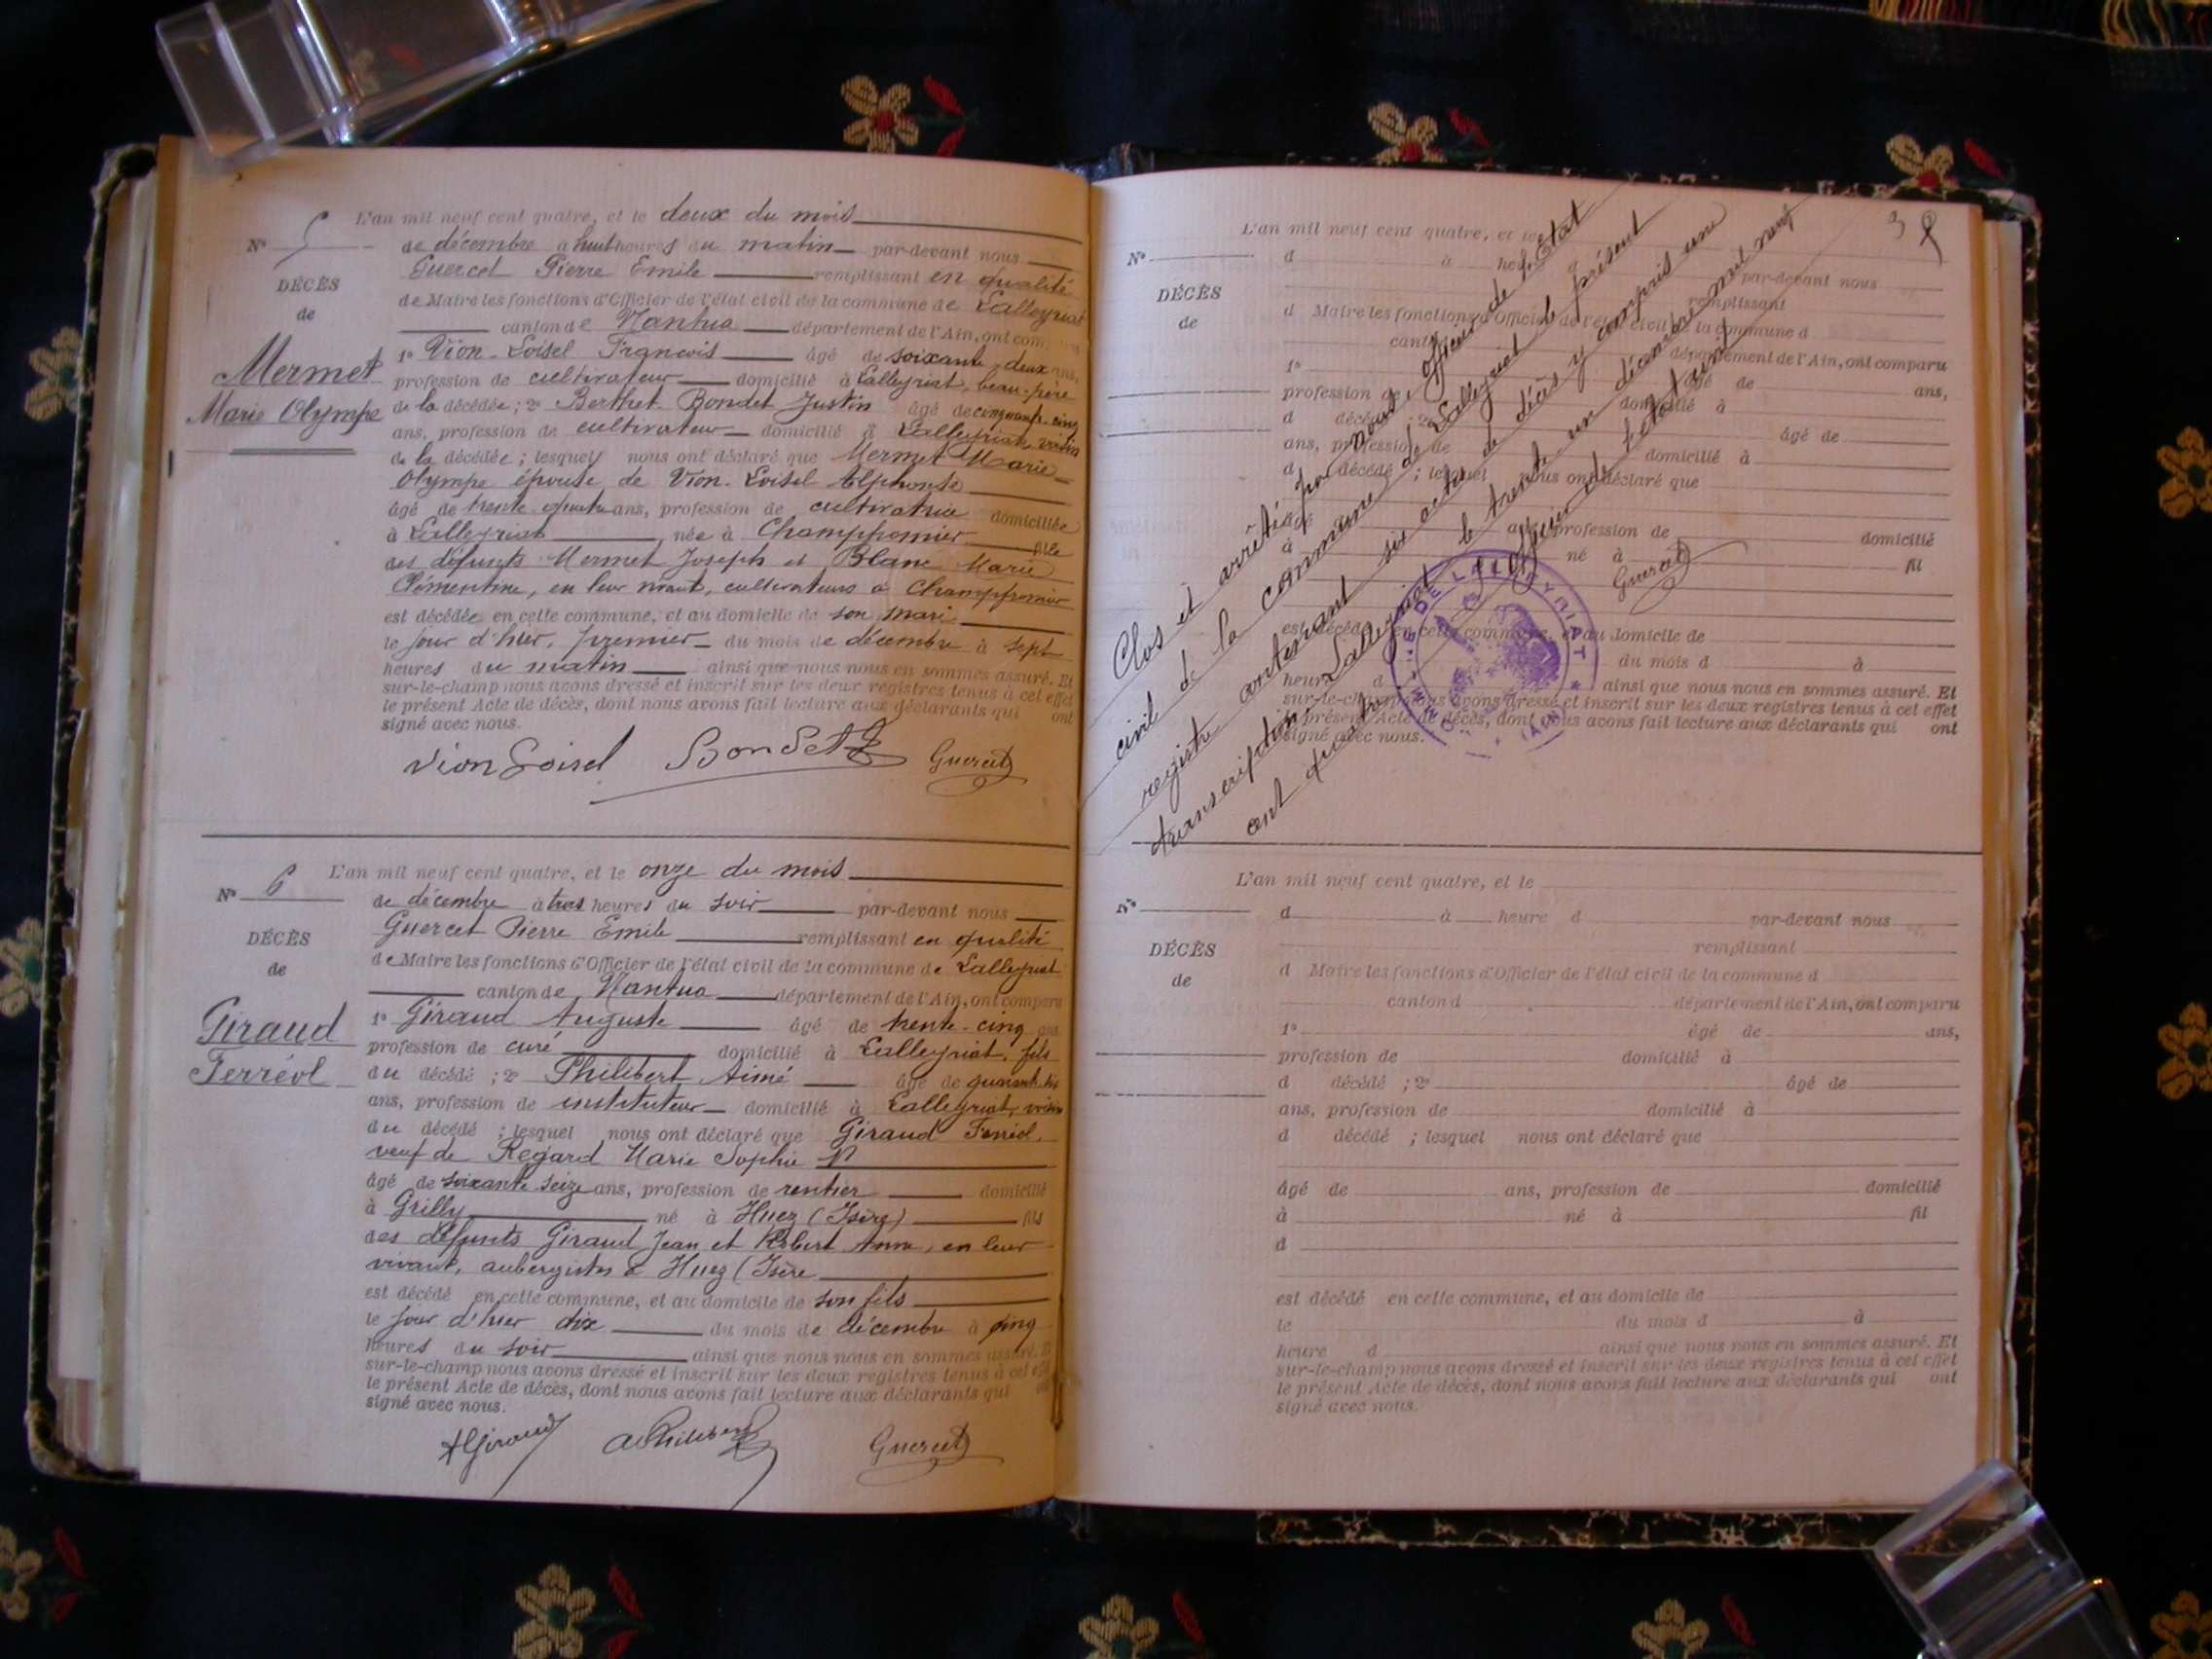 L'an mil neuf cent quatre, et le deux du mois
N° 5 de décembre à huit heures du matin par-devant nous
Guercet Pierre Emile remplissant en qualité
DÉCÈS
de Maire les fonctions d'Officier de l'état civil de la commune de Lalleyriat
de
canton de Nantua département de l'Ain, ont com
1° Vion-Loisel François âgé de soixante-deux ans,
Mermet
profession de cultivateur domicilié à Lalleyriat, beau-père
Marie Olympe
de la décédée; 2° Berthet-Bondet Justin âgé de cinquante-cinq
ans, profession de cultivateur domicilié à Lalleyriat, voisin
de la décédée; lesquels nous ont déclaré que Mermet Marie
Olympe épouse de Vion-Loisel Alphonse
âgé de trente-quatre ans, profession de cultivatrice domiciliée
à Lalleyriat née à Champfromier fille
des défunts Mermet Joseph et Blanc Marie
Clémentine, en leur vivant, cultivateurs à Champfromier
est décédée en cette commune, et au domicile de son mari
le jour d'hier, premier du mois de décembre à sept
heures du matin ainsi que nous nous en sommes assuré. Et
sur-le-champ nous avons dressé et inscrit sur les deux registres tenus à cet effet
le présent Acte de décès, dont nous avons fait lecture aux déclarants qui ont
signé avec nous.
Vion Loisel Bondet Guercet
L'an mil neuf cent quatre, et le onze du mois
N° 6 de décembre à trois heures du soir par-devant nous
Guercet Pierre Emile remplissant en qualité
DÉCÈS
de Maire les fonctions d'Officier de l'état civil de la commune de Lalleyriat
de
canton de Nantua département de l'Ain, ont comparu
1° Giraud Auguste âgé de trente-cinq ans
Giraud
profession de curé domicilié à Lalleyriat, fils
Ferréol
du décédé; 2° Philibert Aimé âgé de
ans, profession de instituteur domicilié à Lalleyriat, voisin
du décédé; lesquel nous ont déclaré que Giraud Ferréol,
veuf de Regard Marie Sophie
âgé de soixante-seize ans, profession de rentier domicilié
à Grilly né à Huez (Isère) fils
des défunts Giraud Jean et Robert Anne, en leur
vivant, aubergistes à Huez (Isère
est décédé en cette commune, et au domicile de son fils
le jour d'hier dix du mois de décembre à cinq
heures du soir ainsi que nous nous en sommes assuré. Et
sur-le-champ nous avons dressé et inscrit sur les deux registres tenus à cet effet
le présent Acte de décès, dont nous avons fait lecture aux déclarants qui ont
signé avec nous.
AGiraud APhilibert Guercet
38
L'an mil neuf cent quatre, et le
N° d à heure d
par-devant nous
DÉCÈS
remplissant
de
d Maire les fonctions d'Officier de l'état civil de la commune d
canton département de l'Ain, ont comparu
1° âgé de ans,
profession de domicilié à
d décédé ; 2° âgé de
ans, profession de domicilié à
d décédé ; lesquel nous ont déclaré que
âgé ans, profession de domicilié
à né à fil
est décédé en cette commune, et au domicile de
du mois d à
heure d ainsi que nous nous en sommes assuré. Et
sur-le-champ nous avons dressé et inscrit sur les deux registres tenus à cet effet
le présent Acte de décès, dont nous avons fait lecture aux déclarants qui ont
signé avec nous.
Clos et arrêté par nous, officier de l'état
civil de la commune de Lalleyriat le présent
registre contenant six actes de décès y compris une
transcription, Lalleyriat le trente un décembre mil neuf
cent quatre
L'officier de l'état civil
Guercet
COMMUNE DE LALLEYRIAT * (AIN) *
L'an mil neuf cent quatre, et le
N° d à heure d par-devant nous
DÉCÈS
remplissant
de
d Maire les fonctions d'Officier de l'état civil de la commune d
canton d département de l'Ain, ont comparu
1° âgé de ans,
profession de domicilié à
d décédé ; 2° âgé de
ans, profession de domicilié à
d décédé ; lesquel nous ont déclaré que
âgé de ans, profession de domicilié
à né à fil
d
est décédé en cette commune, et au domicile de
le du mois d à
heure d ainsi que nous nous en sommes assuré. Et
sur-le-champ nous avons dressé et inscrit sur les deux registres tenus à cet effet
le présent Acte de décès, dont nous avons fait lecture aux déclarants qui ont
signé avec nous.